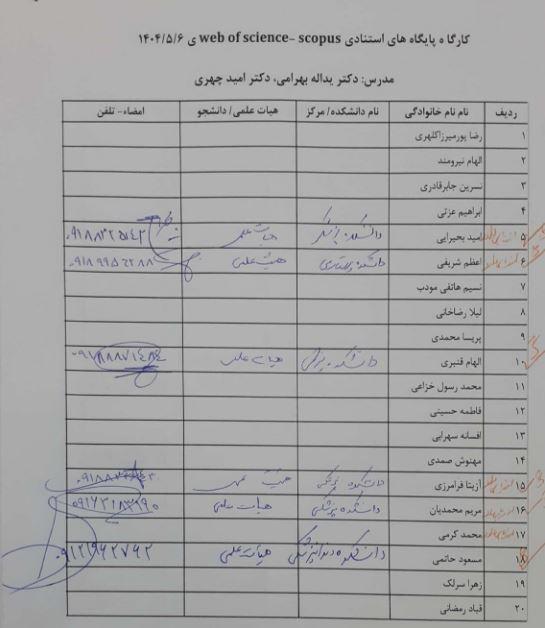 کارگاه پایگاه های استنادی web of science- scopus ی ۱۴۰۴/۵/۶
مدرس: دکتر یداله بهرامی، دکتر امید چهری
ردیف نام نام خانوادگی نام دانشکده/ مرکز هیات علمی/ دانشجو امضاء- تلفن
۱ رضا پورمیرزاکلهری
۲ الهام نیرومند
۳ نسرین جابرقادری
۴ ابراهیم عزتی
۵ امید بحیرایی دانشکده پزشکی هیات علمی
۶ اعظم شریفی دانشکده پرستاری هیئت علمی
۷ نسیم هاتفی مودب
۸ لیلا رضاخانی
۹ پریسا محمدی
۱۰ الهام قنبری دانشکده پزشکی هیات علمی
۱۱ محمد رسول خزاعی
۱۲ فاطمه حسینی
۱۳ افسانه سهرابی
۱۴ مهنوش صمدی
۱۵ آزیتا فرامرزی دانشکده پزشکی هیئت علمی
۱۶ مریم محمدیان دانشکده پزشکی هیات علمی
۱۷ محمد کرمی
۱۸ مسعود حاتمی دانشکده دندانپزشکی هیات علمی ۰۹۱۲۱۹۶۲۷۶۲
۱۹ زهرا سرلک
۲۰ قباد رمضانی